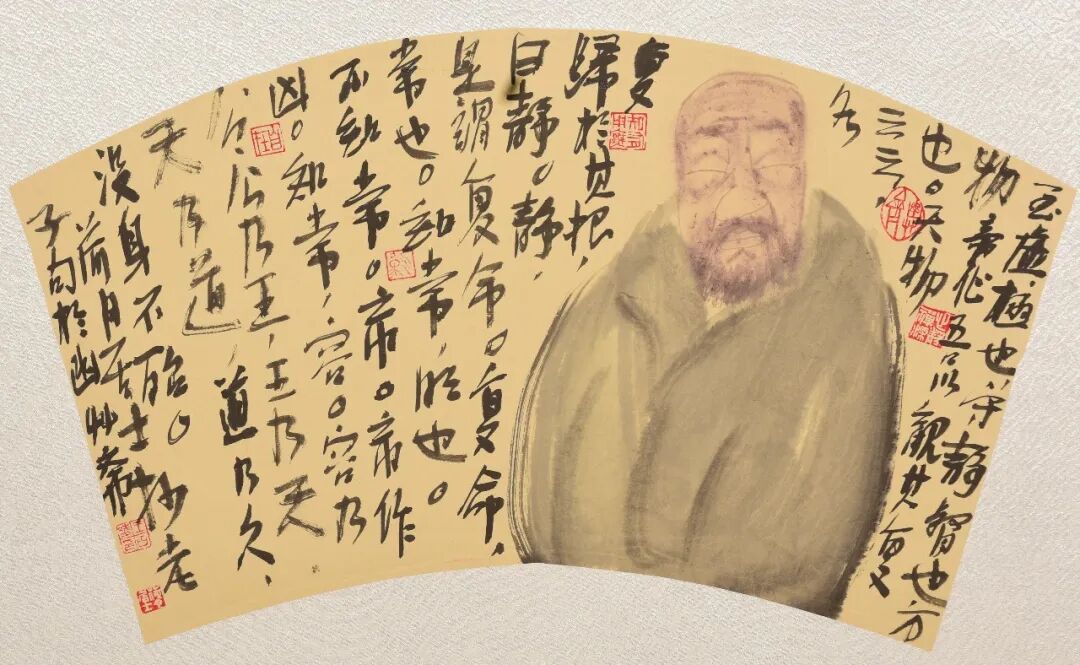 至虛極也守靜督也方
物旁作五以觀其复
也。天物
云云、
各
复
歸於其根,
曰靜。靜,
是謂复命。复命,
常也。知常,明也。
不知常。帝。帝作
凶。知常,容。容乃
公,公乃王,王乃天
天乃道,道乃久、
沒身不殆。抄老
子句於幽艸齋